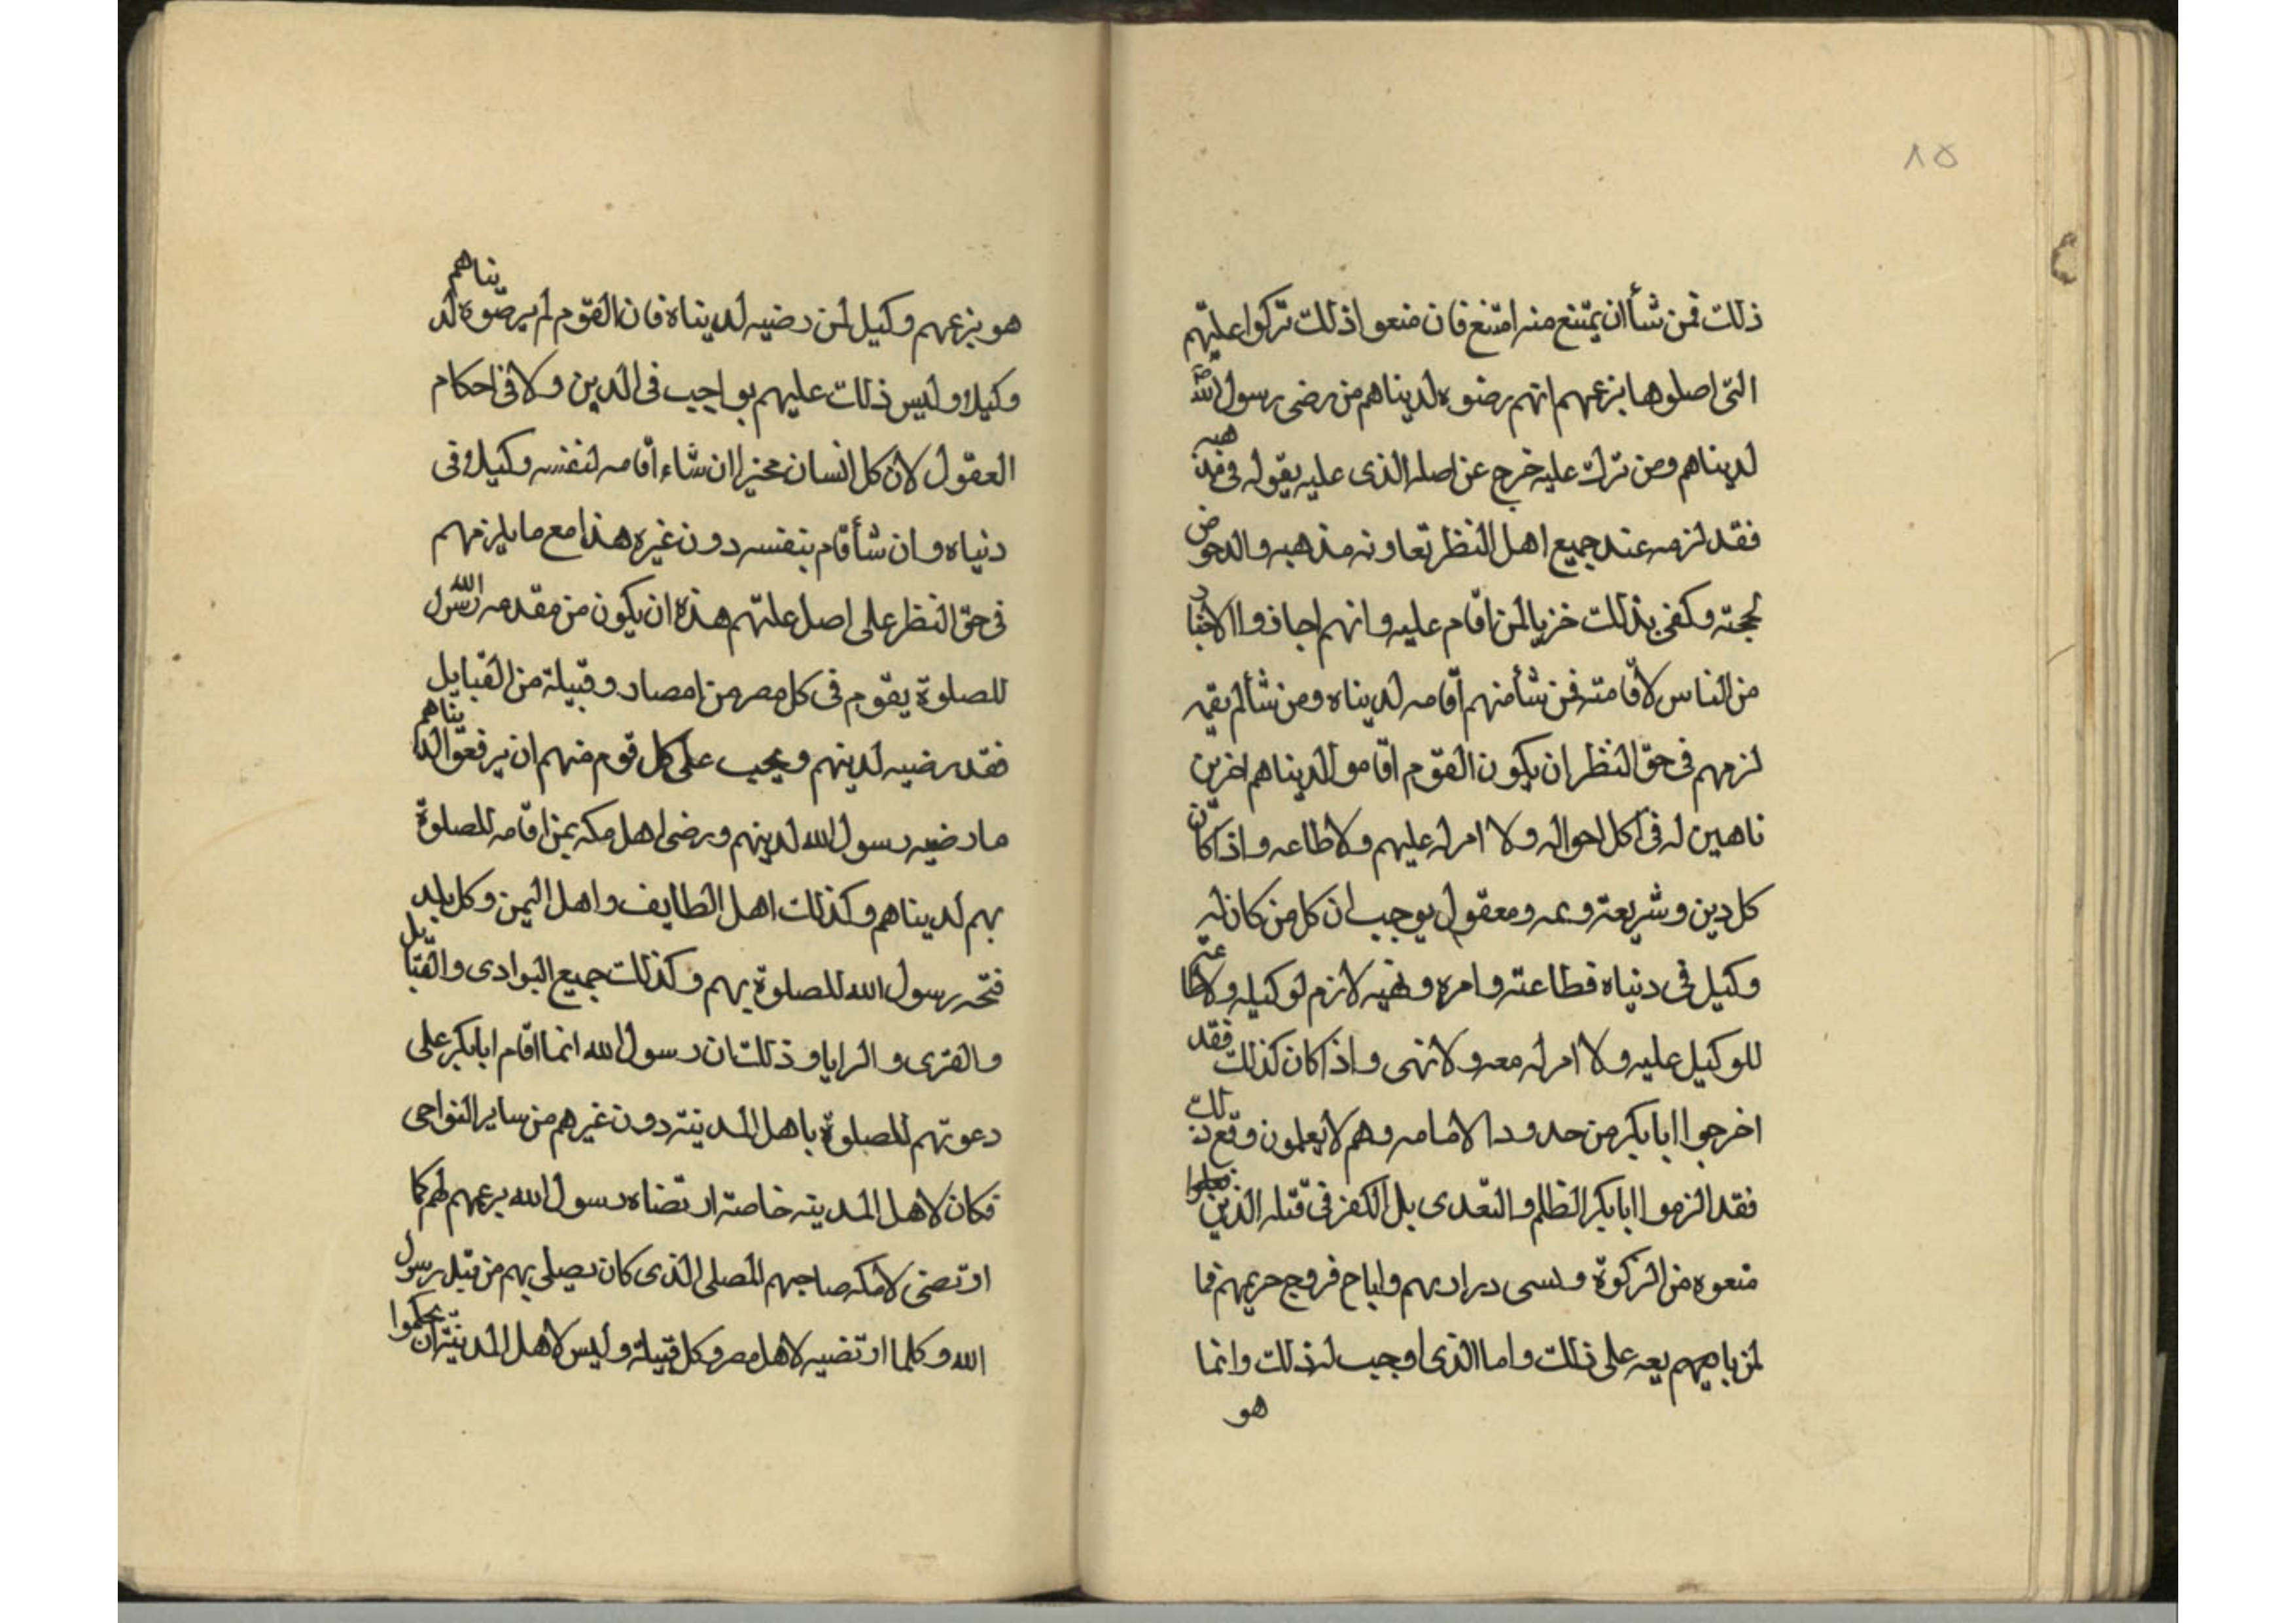 ٨٥
ذلك فمن شأ ان يمتنع منه امتنع فان منعوا ذلك تركوا علتهم
التى اصلوها بزعمهم انهم رضوه لدنياهم من رضى رسول الله
لدينهاهم ومن ترك عليه خرج عن اصله الذى عليه يقوله فى مذهبه
فقد لزمه عند جميع اهل النظر تعاونه مذهبه والدحوض
لحجته وكفى بذلك خزيا لمن اقام عليه وانهم اجازوا الاختيار
من الناس لاقامته فمن شأ منهم اقامه لديناه ومن شأ لم يقمه
لزمهم فى حق النظر ان يكون القوم اقاموا لديناهم اخرين
ناهين له فى كل احواله ولا امر له عليهم ولا طاعه واذا كان
كل دين وشريعة و ومعقول يوجب ان كل من كان له
وكيل فى دنياه فطاعته وامره ونهيه لازم لوكيله ولا طاعته
للوكيل عليه ولا امر له معه ولا نهى واذا كان كذلك فقد
اخرجوا ابا بكر من حدود الامامه وهم لا يعلمون وقع ذلك
فقد الزموا ابا بكر الظلم والتعدى بل الكفر فى قتله الذين
منعوه من الزكوة وسبى دراريهم واباح فروج حريمهم فما
لمن على ذلك واما الذى اوجب له ذلك وانما
هو
هو بزعمهم وكيل لمن رضيه لديناه فان القوم لم يرضوه لديناهم
وكيلا وليس ذلك عليهم بواجب فى الدين ولا فى احكام
العقول لان كل انسان مخير ان شاء اقامه لنفسه وكيلا فى
دنياه وان شأ قام بنفسه دون غيره هذا مع ما يلزمهم
فى حق النظر على اصل علتهم هذه ان يكون من مقدمه رسول الله
للصلوة يقوم فى كل مصر من امصار وقبيلة من القبايل
فقد رضيه لدينهم ويجب على كل قوم منهم ان يرفعوا لديناهم
ما رضيه رسول الله لدينهم ورضى اهل مكه بمن اقامه للصلوة
بهم لديناهم وكذلك اهل الطايف واهل اليمن وكل بلد
فتحه رسول الله للصلوة بهم وكذلك جميع البوادى والقبايل
والقرى والرايا وذلك ان رسول الله انما اقام ابا بكر على
دعوتهم للصلوة باهل المدينة دون غيرهم من ساير النواحى
فكان لاهل المدينه خاصة ارتضاه رسول الله بزعمهم لهم كما
ارتضى لامكه صاحبهم المصلى الذى كان يصلى بهم من قبل رسول
الله وكلما ارتضيه لاهل مصر وكل قبيلة وليس لاهل المدينة ان يحكموا